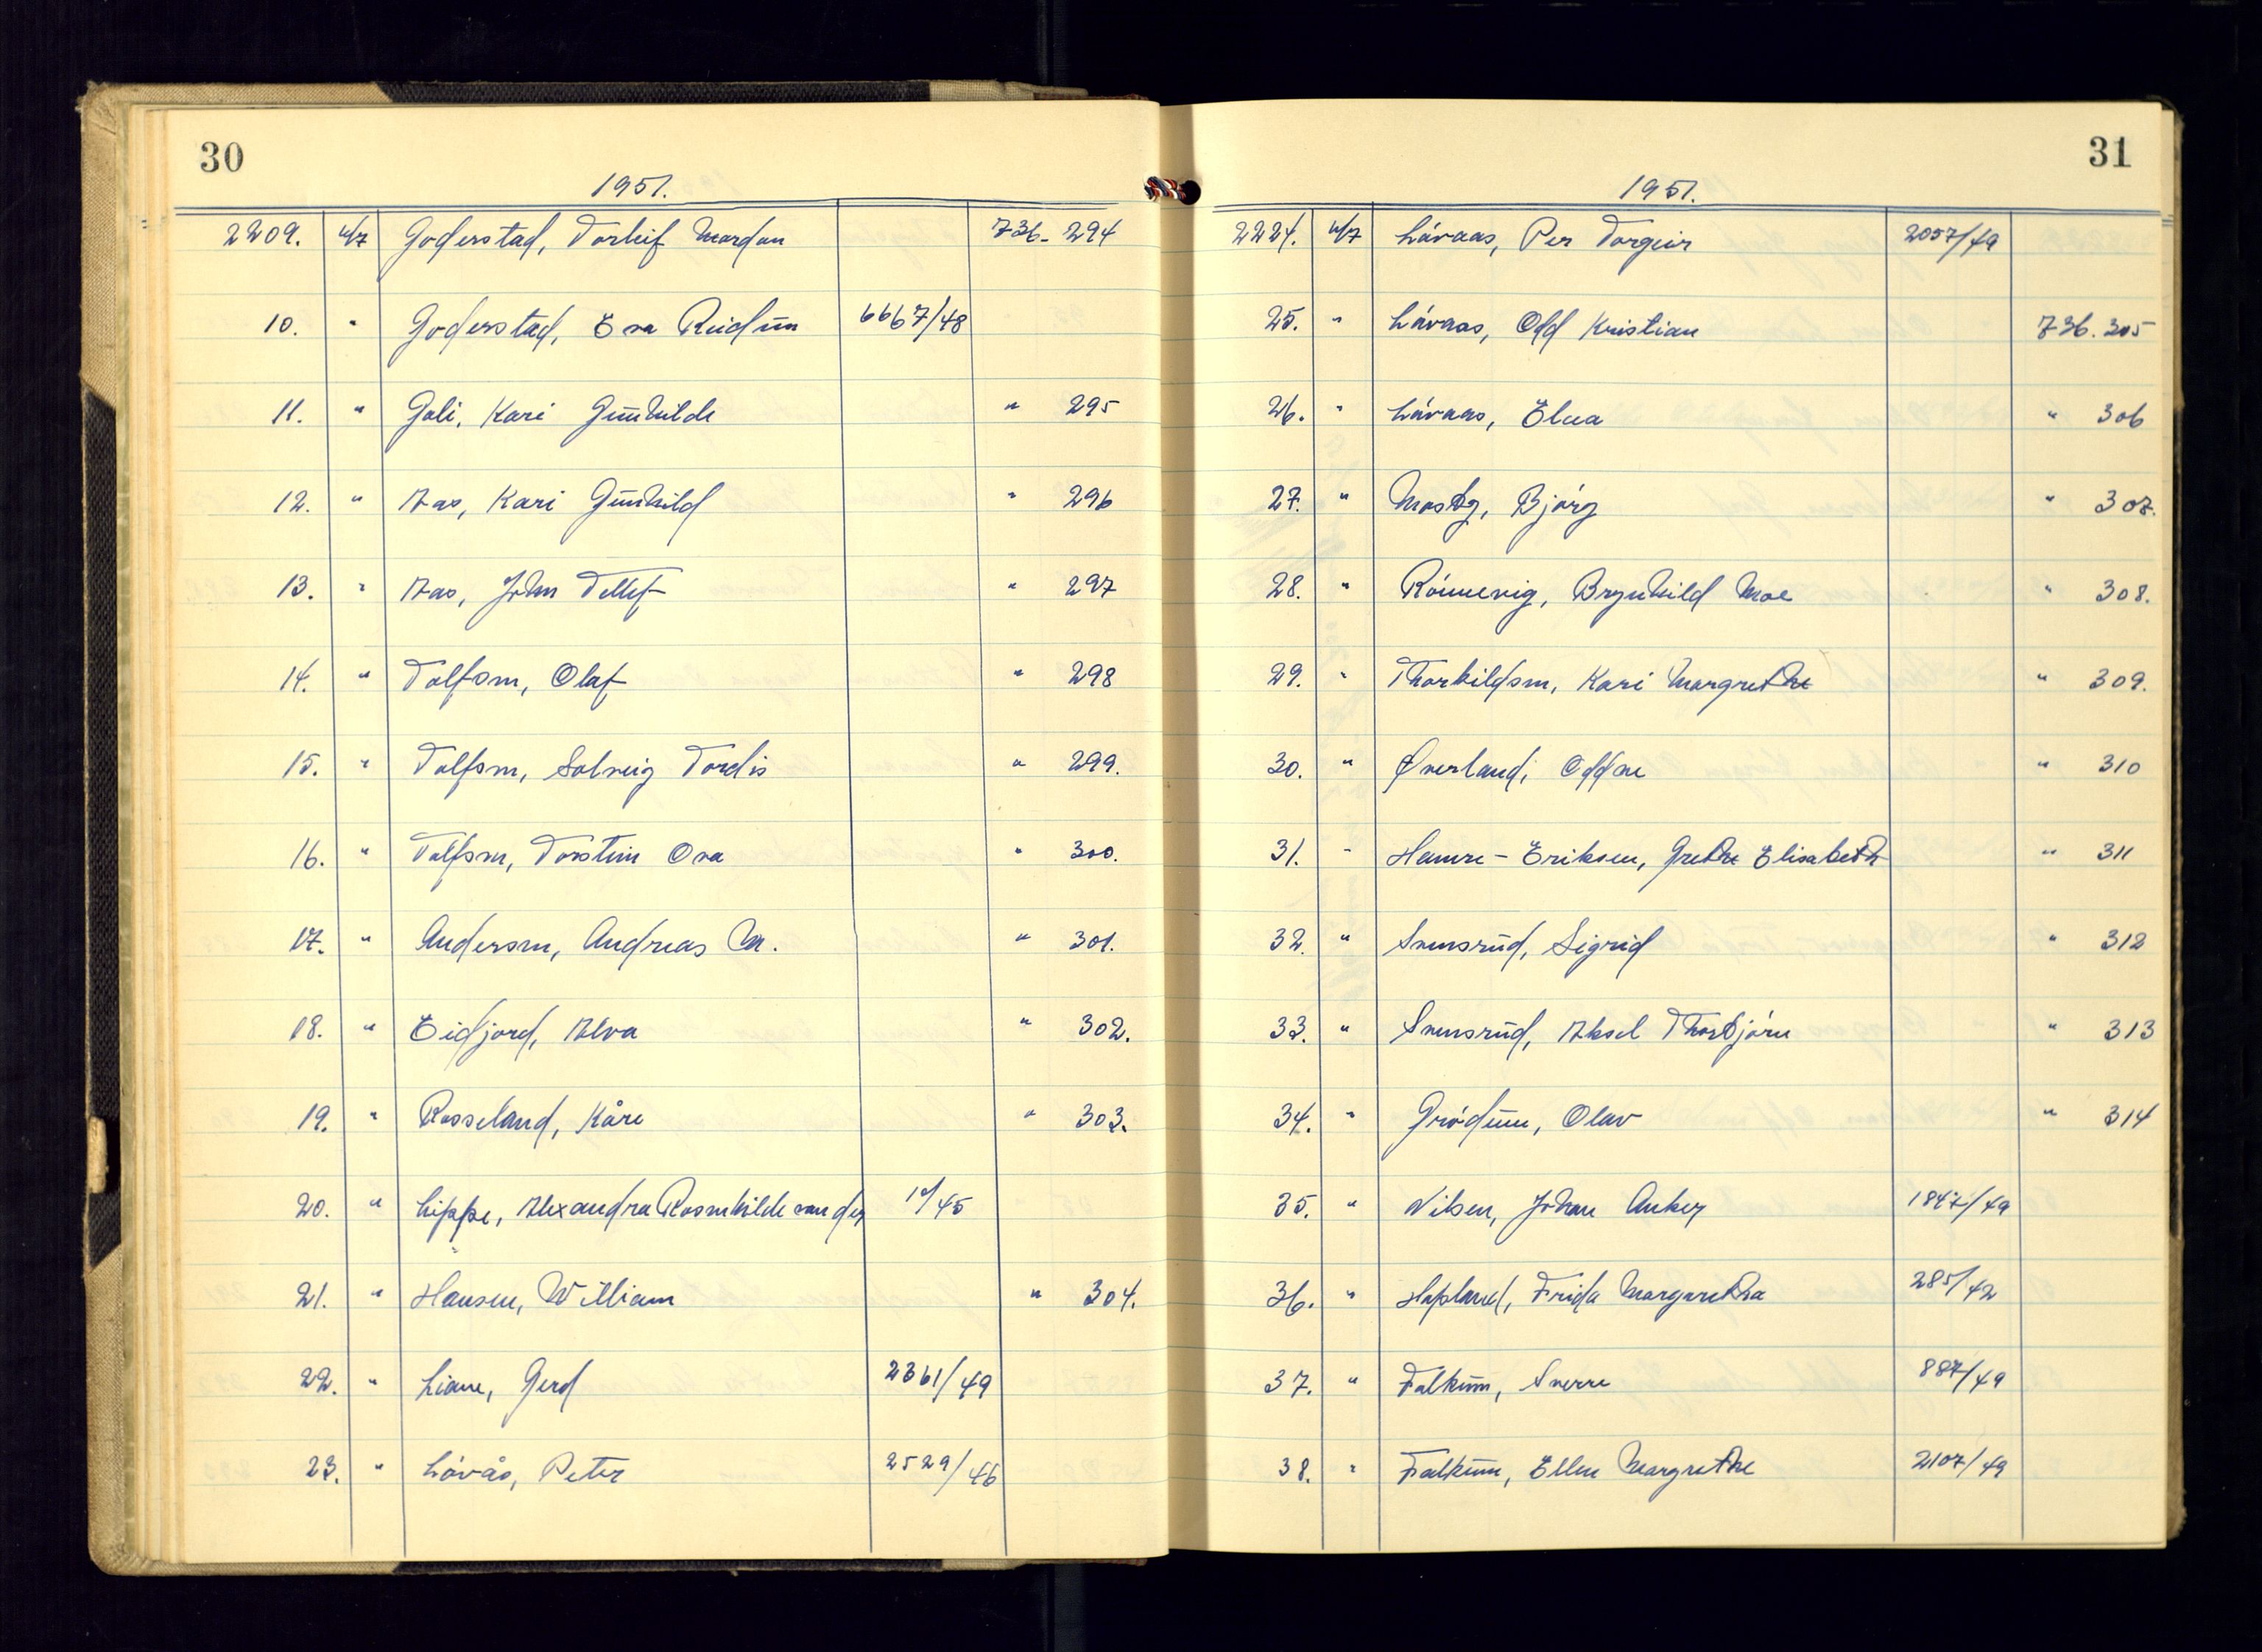 30
1951.
2209. 4/7 Goderstad, Torleif Mardon 736- 294
10. " Goderstad, Eva Reidun 6667/48
11. " Gali, Kari Gunhilde " 295
12. " Aas, Kari Gunhild " 296
13. " Aas, John Detlef " 297
14. " Tolfsen, Olaf " 298
15. " Tolfsen, Solveig Tordis " 299.
16. " Tolfsen, Torstein Ova " 300.
17. " Andersen, Andreas M. " 301.
18. " Eidjord, Alva " 302.
19. " Rosseland, Kåre " 303.
20. " Lippe, Alexandra Rosenhilde van der 10/45
21. " Hansen, William " 304.
22. " Liane, Gerd 2361/49
23. " Lövås, Peter 2529/46
31
1951.
2224. 4/7 Lövaas, Per Torgeir 2057/49
25. " Lövaas, Odd Kristian 736. 305
26. " Lövaas, Elna " 306
27. " Mosby, Björg " 307.
28. " Rönnevig, Brynhild Moe " 308.
29. " Thorkildsen, Kari Margrethe " 309.
30. " Øverland, Oddne " 310
31. " Hamre-Eriksen, Grethe Elisabeth " 311
32. " Svensrud, Sigrid " 312
33. " Svensrud, Aksel Thorbjörn " 313
34. " Grödum, Olav " 314
35. " Nilsen, Johan Anker 1847/49
36. " Hapland, Frida Margaretha 285/42
37. " Falkum, Sverre 887/49
38. " Falkum, Ellen Margrethe 2107/49